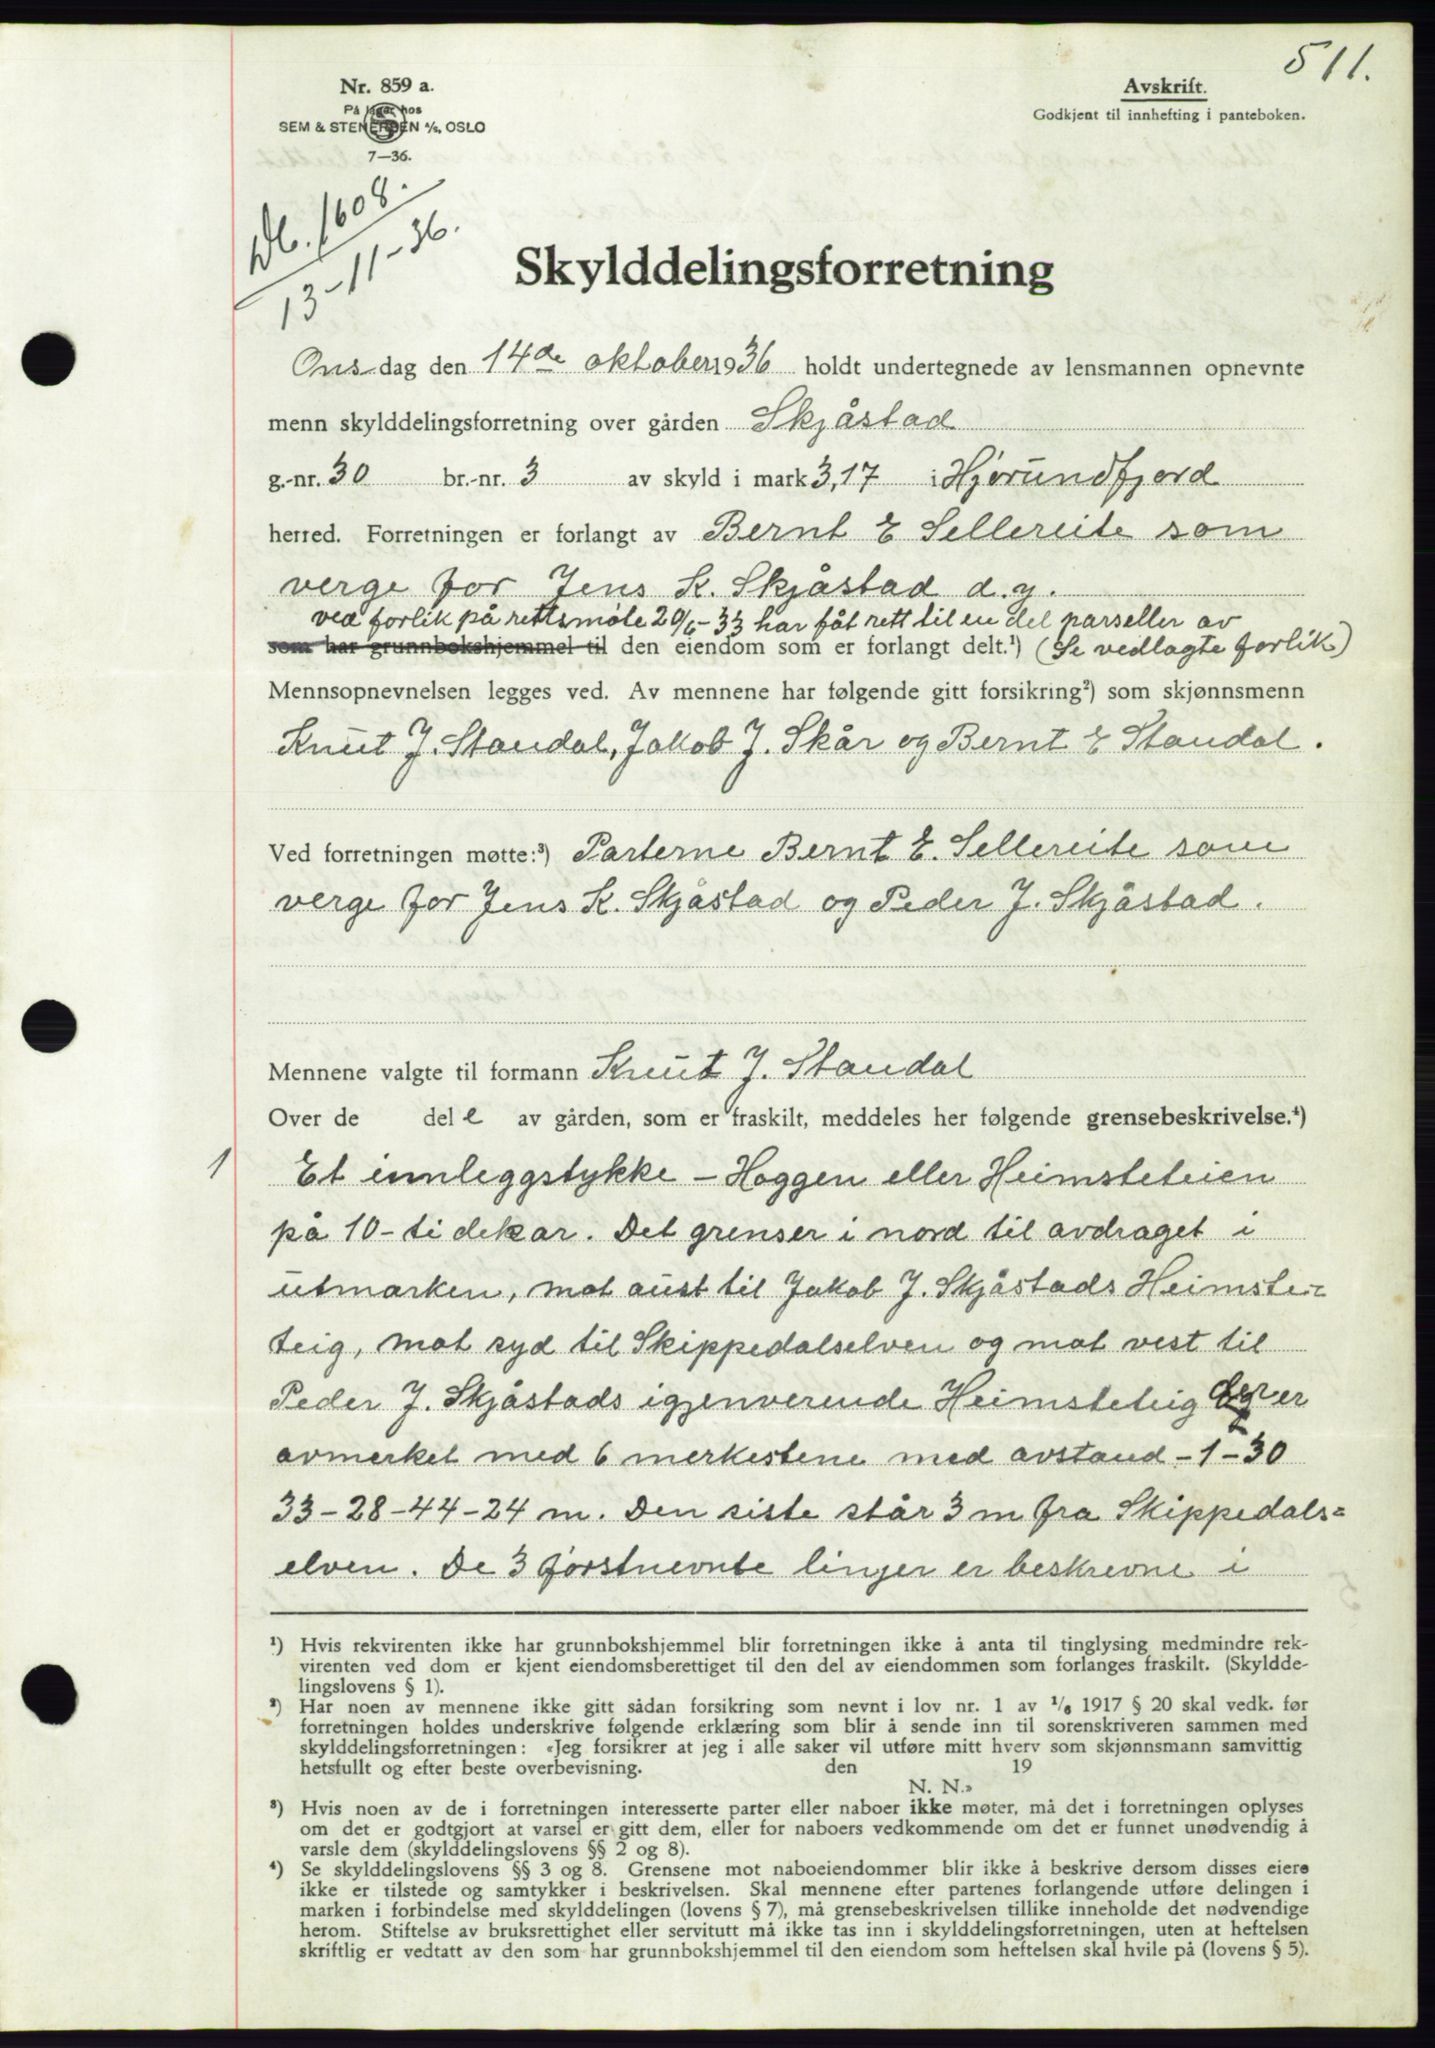 511.
Nr. 859 a.
På lager hos
SEM & STENERSEN A/S, OSLO
7—36.
Avskrift.
Godkjent til innhefting i panteboken.
Db. 1608.
13-11-36.
Skylddelingsforretning
Onsdag den 14de oktober 1936 holdt undertegnede av lensmannen opnevnte
menn skylddelingsforretning over gården Skjåstad
g.-nr. 30 br.-nr. 3 av skyld i mark 3,17 i Hjørundfjord
herred. Forretningen er forlangt av Bernt E Sellereite som
verge for Jens K. Skjåstad d.y.
ved forlik på rettsmøte 20/6-33 har fåt rett til en del parseller av
som har grunnbokshjemmel til den eiendom som er forlangt delt.¹) (Se vedlagte forlik)
Mennsopnevnelsen legges ved. Av mennene har følgende gitt forsikring²) som skjønnsmenn
Knut J. Standal, Jakob J. Skår og Bernt E Standal.
Ved forretningen møtte:³) Parterne Bernt E. Sellereite som
verge for Jens K. Skjåstad og Peder J. Skjåstad.
Mennene valgte til formann Knut J. Standal
Over de del e av gården, som er fraskilt, meddeles her følgende grensebeskrivelse.⁴)
1 Et innleggstykke – Hoggen eller Heimsteteien
på 10- ti dekar. Det grenser i nord til avdraget i
utmarken, mot aust til Jakob J. Skjåstads Heimste-
teig, mot syd til Skippedalselven og mot vest til
Peder J. Skjåstads igjenverende Heimsteteig der er
avmerket med 6 merkestene med avstand -1-30
33-28-44-24 m. Den siste står 3 m fra Skippedals=
elven. De 3 førstnevnte linjer er beskrevne i
¹) Hvis rekvirenten ikke har grunnbokshjemmel blir forretningen ikke å anta til tinglysing medmindre rek-
virenten ved dom er kjent eiendomsberettiget til den del av eiendommen som forlanges fraskilt. (Skyldde-
lingslovens § 1).
²) Har noen av mennene ikke gitt sådan forsikring som nevnt i lov nr. 1 av ¹/₆ 1917 § 20 skal vedk. før
forretningen holdes underskrive følgende erklæring som blir å sende inn til sorenskriveren sammen med
skylddelingsforretningen: «Jeg forsikrer at jeg i alle saker vil utføre mitt hverv som skjønnsmann samvittig
hetsfullt og efter beste overbevisning. den 19
N. N.»
³) Hvis noen av de i forretningen interesserte parter eller naboer ikke møter, må det i forretningen oplyses
om det er godtgjort at varsel er gitt dem, eller for naboers vedkommende om det er funnet unødvendig å
varsle dem (skylddelingslovens §§ 2 og 8).
⁴) Se skylddelingslovens §§ 3 og 8. Grensene mot naboeiendommer blir ikke å beskrive dersom disses eiere
ikke er tilstede og samtykker i beskrivelsen. Skal mennene efter partenes forlangende utføre delingen i
marken i forbindelse med skylddelingen (lovens § 7), må grensebeskrivelsen tillike inneholde det nødvendige
herom. Stiftelse av bruksrettighet eller servitutt må ikke tas inn i skylddelingsforretningen, uten at heftelsen
skriftlig er vedtatt av den som har grunnbokshjemmel til den eiendom som heftelsen skal hvile på (lovens § 5).